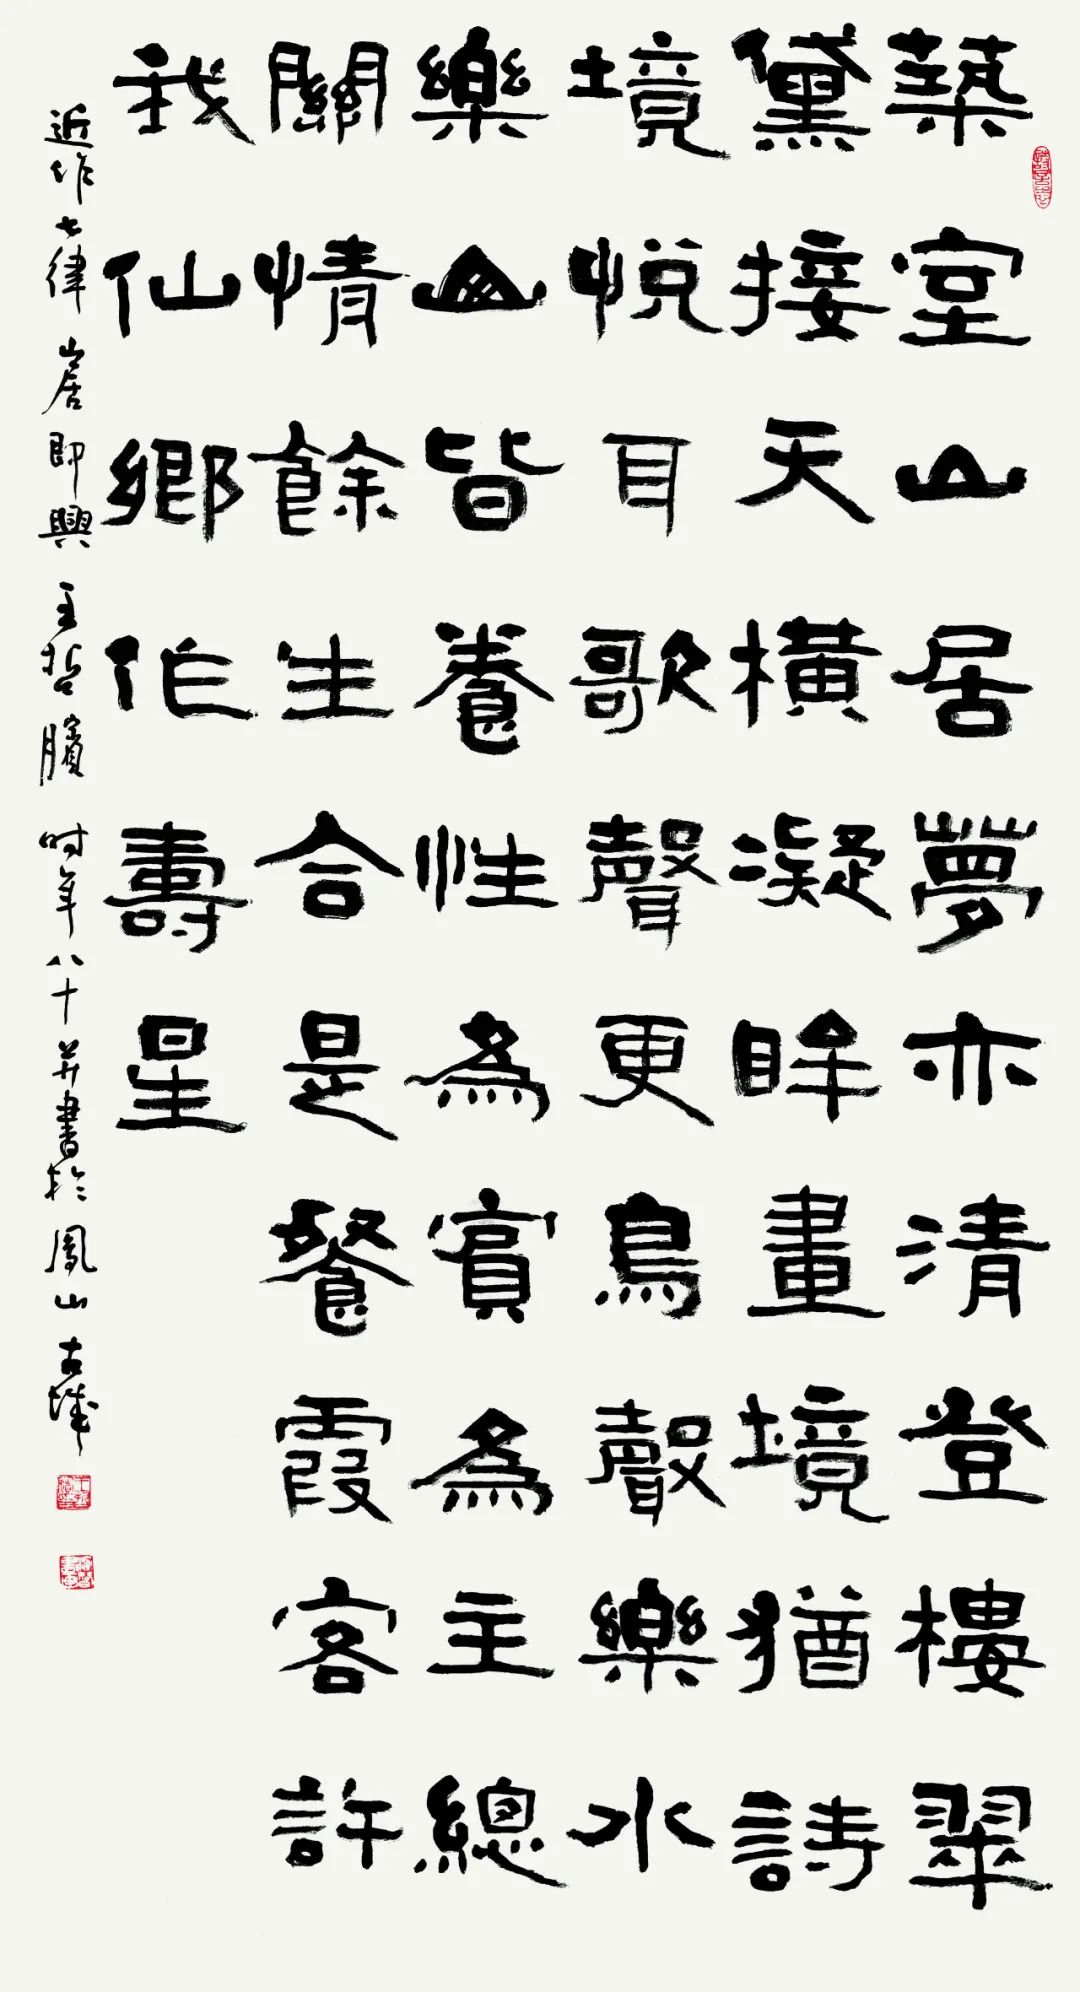 築室山居夢亦清登樓翠
黛接天橫凝眸畫境猶詩
境悅耳歌聲更鳥聲樂水
樂山皆養性為賓為主總
關情餘生合是餐霞客許
我仙鄉作壽星
近作七律山居即興王哲臏时年八十并書於鳳山古城